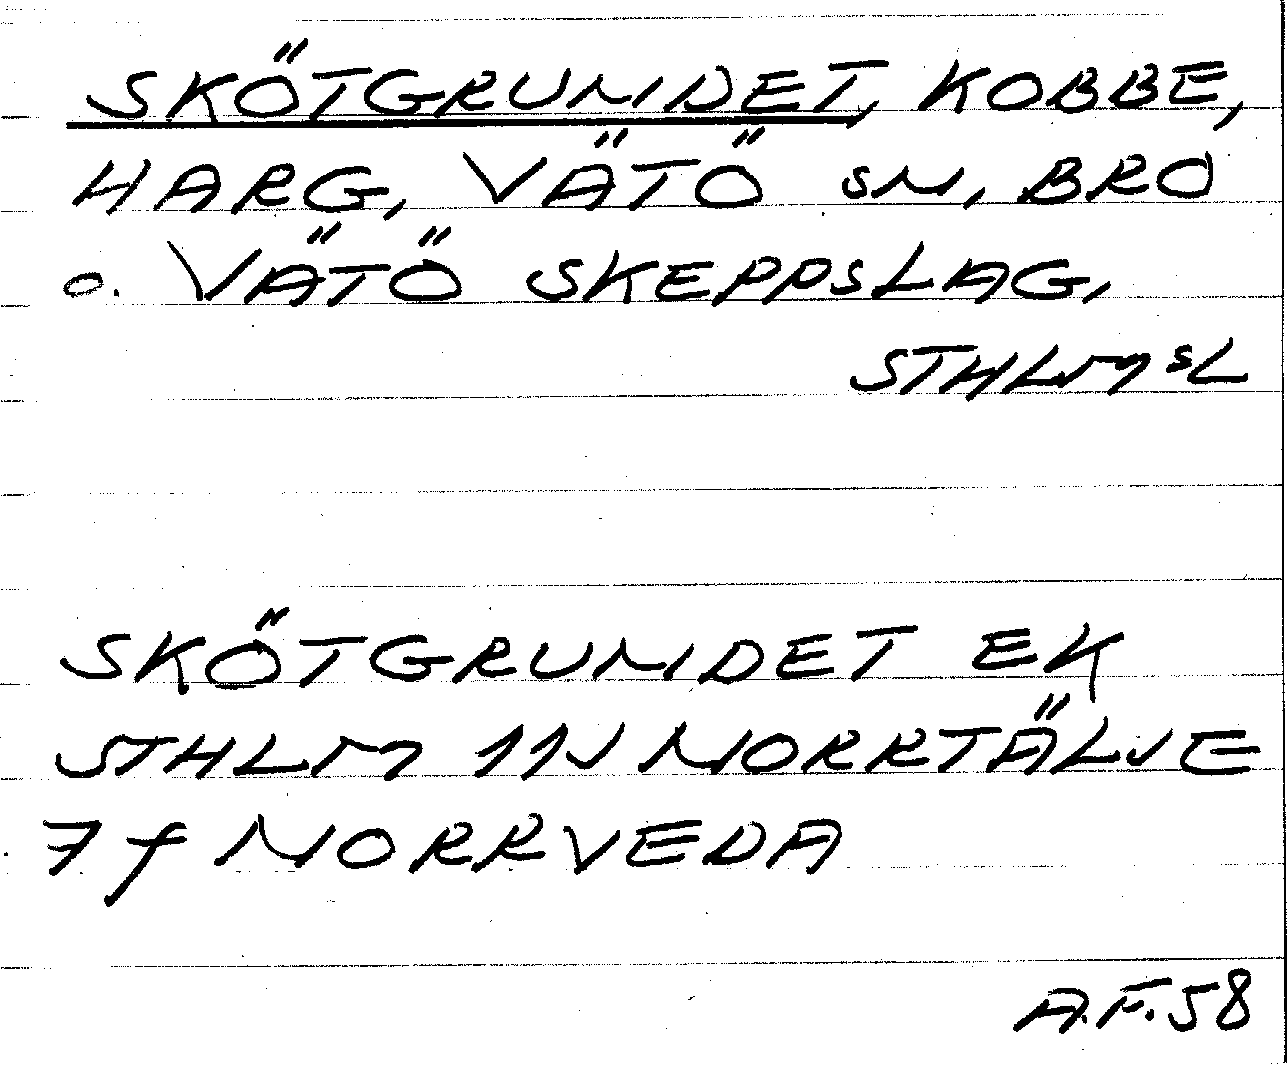 SKÖTGRUNDET, KOBBE,
HARG, VÄTÖ SN, BRO
o. VÄTÖ SKEPPSLAG,
STHLMSL
SKÖTGRUNDET EK
STHLM 11J NORRTÄLJE
7f NORRVEDA
A.F.58